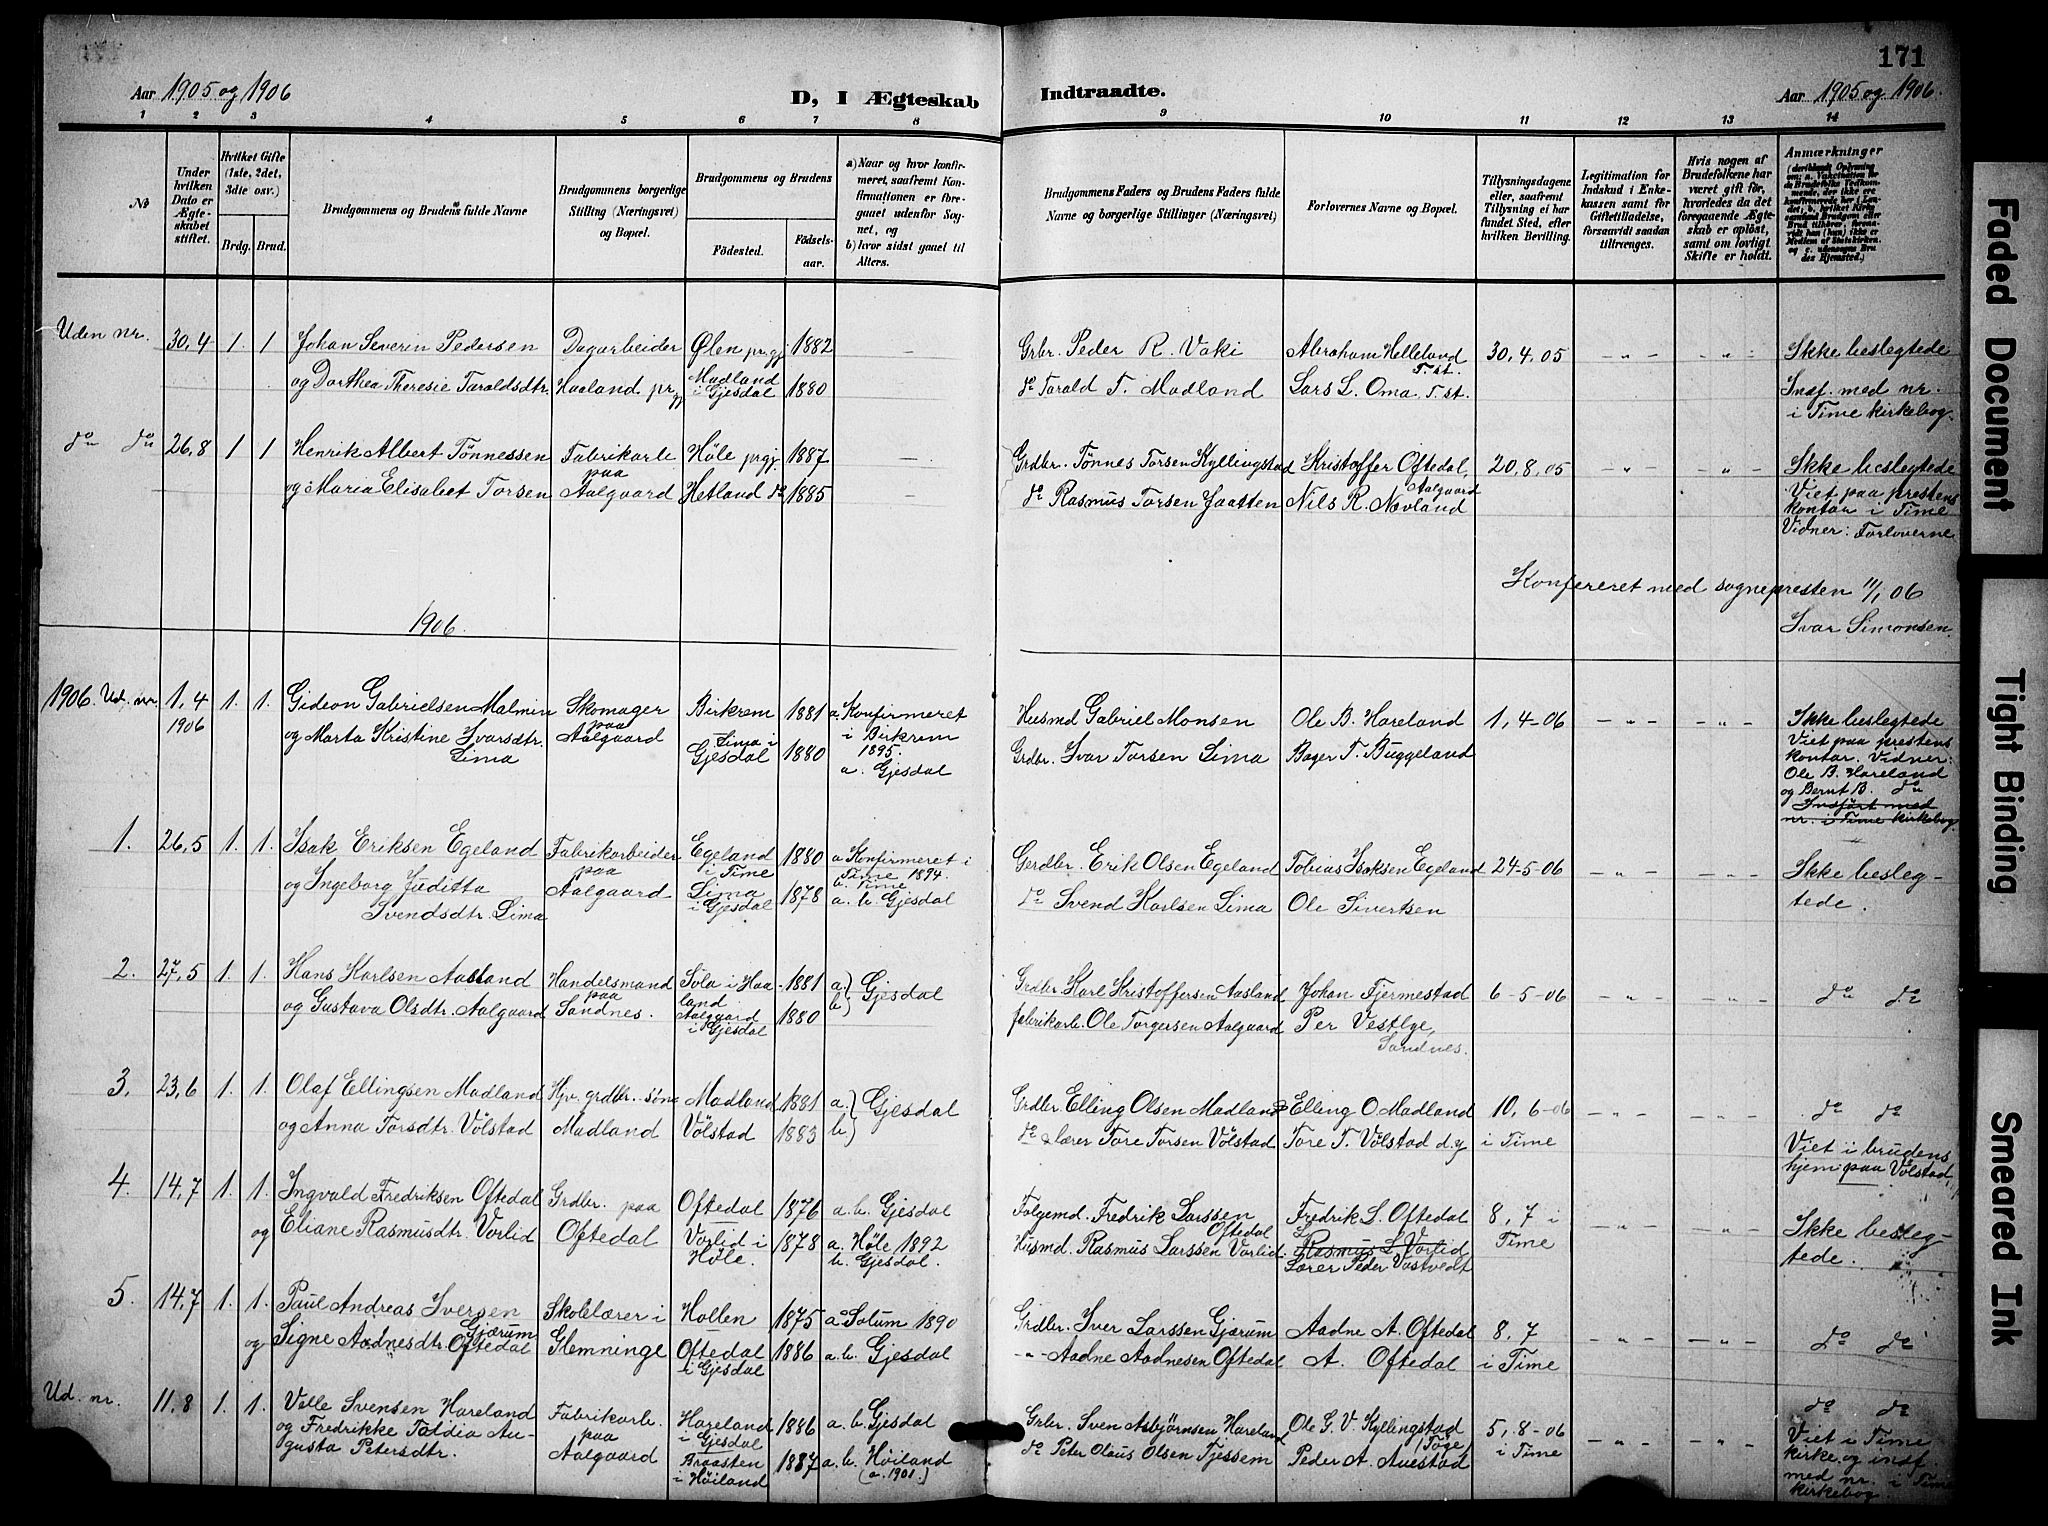 171
Aar 1905 og 1906
D, I Ægteskab Indtraadte.
Aar 1905 og 1906.
1 2 3 4 5 6 7 8 9 10 11 12 13 14
No
Under hvilken Dato er Ægteskabet stiftet.
Hvilket Gifte (1ste, 2det, 3die osv.)
Brdg. Brud.
Brudgommens og Brudens fulde Navne
Brudgommens borgerlige Stilling (Næringsvei) og Bopæl.
Brudgommens og Brudens
Födested.
Födselsaar.
a) Naar og hvor konfirmeret, saafremt Konfirmationen er foregaaet udenfor Sognet, og
b) hvor sidst gaaet til Alters.
Brudgommens Faders og Brudens Faders fulde Navne og borgerlige Stillinger (Næringsvei)
Forlovernes Navne og Bopæl.
Tillysningsdagene eller, saafremt Tillysning ei har fundet Sted, efter hvilken Bevilling.
Legitimation for Indskud i Enkekassen samt for Giftetilladelse, forsaavidt saadan tiltrænges.
Hvis nogen af Brudefolkene har været gift før, hvorledes da det foregaaende Ægteskab er opløst, samt om lovligt Skifte er holdt.
Anmærkninger
Uden nr. 30,4 1. 1 Johan Severin Pedersen Dagarbeider Ølen prgj. 1882 — Grbr. Peder R. Vaki Abraham Helleland T. st. 30,4,05 — „ — „ Ikke beslegtede
og Dorthea Theresie Taraldsdtr. Haaland prgj. Madland i Gjesdal 1880 do Tarald T. Madland Lars L. Oma T. st. Indf. med nr. i Time kirkebog.
do do 26,8 1 1 Henrik Albert Tönnessen Fabrikarb. paa Höle prgj. 1887 — Grdbr. Tönnes Torsen Kyllingstad Kristoffer Oftedal, Aalgaard 20,8,05 — „ — „ Ikke beslegtede
og Maria Elisabet Torsen Aalgaard Hetland do 1885 — do Rasmus Torsen Jaatten Nils R. Nævland Viet paa prestens kontor i Time Vidner: Forloverne
Konfereret med sognepresten 11/1 06
Ivar Simonsen.
1906.
1906. Ud. nr. 1,4 1906 1. 1. Gideon Gabrielsen Malmin Skomager paa Birkrem 1881 a. Konfirmeret i Birkrem 1895. Husmd Gabriel Monsen Ole B. Hareland 1,4-06 — „ — — „ — Ikke beslegtede
og Marta Kristine Ivarsdtr. Lima Aalgaard Lima i Gjesdal 1880 a. Gjesdal Grdbr. Ivar Torsen Lima Bager T. Buggeland Viet paa prestens kontor. Vidner: Ole B. Hareland og Bernt B. do
Indfört med nr. i Time kirkebog
1. 26,5 1. 1. Isak Eriksen Egeland Fabrikarbeider paa Egeland i Time 1880 a. Konfirmeret i Time 1894. b. Time Gerdbr. Erik Olsen Egeland Tobias Isaksen Egeland 24-5-06 — „ — — „ — Ikke besleg-
og Ingeborg Juditta Svendsdtr. Lima Aalgaard Lima i Gjesdal 1878 a. b. Gjesdal do Svend Karlsen Lima Ole Sivertsen tede.
2. 27,5 1. 1. Hans Karlsen Aasland Handelsmand paa Sola i Haaland 1881 a. b. Gjesdal Grdbr. Karl Kristoffersen Aasland Johan Fjermestad 6-5-06 — „ — — „ — do do
og Gustava Olsdtr. Aalgaard Sandnes. Aalgaard i Gjesdal 1880 fabrikarb. Ole Torgersen Aalgaard Per Vestlye, Sandnes.
3. 23,6 1. 1. Olaf Ellingsen Madland Hjv. grdbr. søn Madland 1881 a. b. Gjesdal Grdbr. Elling Olsen Madland Elling O. Madland 10,6-06 — „ — — „ — do do
og Anna Torsdtr. Völstad Madland Völstad 1883 do & lærer Tore Torsen Völstad Tore T. Völstad d. y. i Time Viet i brudens hjem paa Völstad,
4. 14,7 1. 1. Ingvald Fredriksen Oftedal Grdbr. paa Oftedal 1876 a. b. Gjesdal Folgemd. Fredrik Larssen Oftedal Fredrik L. Oftedal 8,7 i Time — „ — — „ Ikke besleg-
og Eliane Rasmusdtr. Vorlid Oftedal Vorlid i Höle. 1878 a. Höle 1892 b. Gjesdal. Husmd. Rasmus Larssen Vorlid. Rasmus L. Vorlid Lærer Peder Vastvedt tede.
5. 14,7 1. 1. Paul Andreas Iversen Gjærum Skolelærer i Hollen 1875 a. Solum 1890 Grdbr. Iver Larssen Gjærum Aadne A. Oftedal 8,7 i Time — „ — — „ — do do
og Signe Aadnesdtr. Oftedal Glemminge Oftedal i Gjesdal 1886 a. b. Gjesdal -„- Aadne Aadnesen Oftedal A. Oftedal
Ud. nr. 11,8 1. 1. Velle Svensen Hareland Fabrikarb. paa Hareland i Gjesdal 1886 a. b. Gjesdal Grbr. Sven Asbjørnsen Hareland Ole G. V. Kyllingstad 5,8-06 i Time — „ — — „ — do do
og Fredrikke Taldia Augusta Petersdtr. Aalgaard Braasten i Höiland 1887 a. b. Höiland (a. 1901.) do Peter Olaus Olsen Tjessem Peder A. Auestad Viet i Time kirke og indf. med nr. i Time kirkebog.
Faded Document
Tight Binding
Smeared Ink